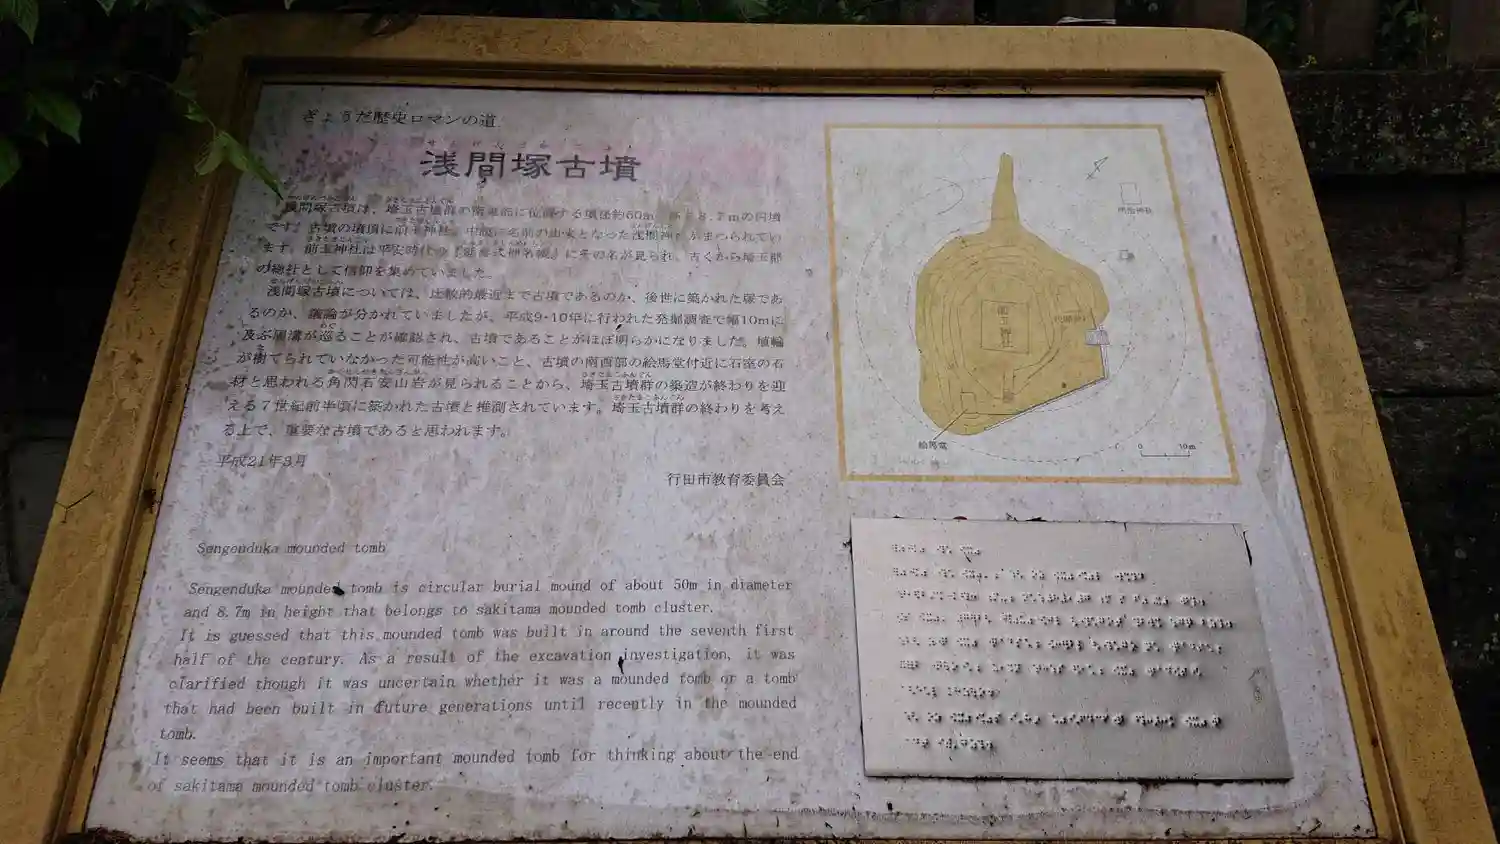 ぎょうだ歴史ロマンの道
浅間塚古墳
浅間塚古墳は、埼玉古墳群の南東部に位置する墳径約50m、高さ8.7mの円墳
です。古墳の墳頂に前玉神社、中腹に名前の由来となった浅間神社がまつられてい
ます。前玉神社は平安時代の『延喜式神名帳』にその名が見られ、古くから埼玉郡
の総社として信仰を集めていました。
浅間塚古墳については、比較的最近まで古墳であるのか、後世に築かれた塚であ
るのか、議論が分かれていましたが、平成9・10年に行われた発掘調査で幅10mに
及ぶ周溝が巡ることが確認され、古墳であることがほぼ明らかになりました。埴輪
が樹てられていなかった可能性が高いこと、古墳の南西部の絵馬堂付近に石室の石
材と思われる角閃石安山岩が見られることから、埼玉古墳群の築造が終わりを迎
える7世紀前半頃に築かれた古墳と推測されています。埼玉古墳群の終わりを考え
る上で、重要な古墳であると思われます。
平成21年3月
行田市教育委員会
Sengenduka mounded tomb
Sengenduka mounded tomb is circular burial mound of about 50m in diameter
and 8.7m in height that belongs to sakitama mounded tomb cluster.
It is guessed that this mounded tomb was built in around the seventh first
half of the century. As a result of the excavation investigation, it was
clarified though it was uncertain whether it was a mounded tomb or a tomb
that had been built in future generations until recently in the mounded
tomb.
It seems that it is an important mounded tomb for thinking about the end
of sakitama mounded tomb cluster.
前玉神社
絵馬堂
0 10m